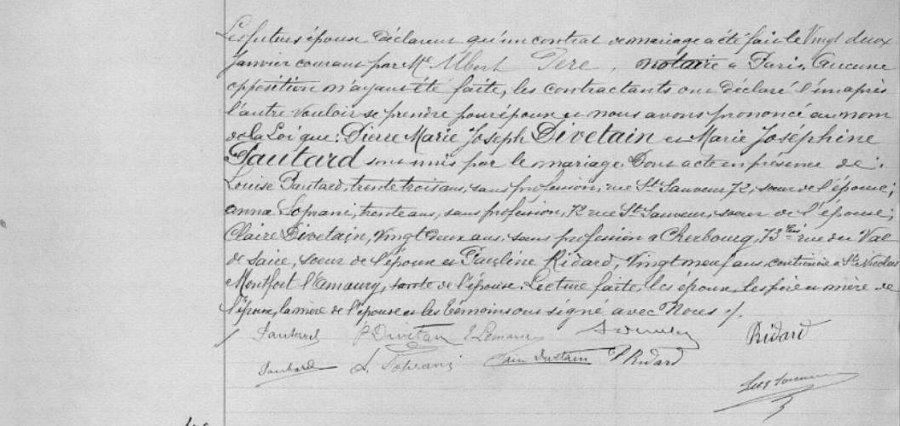 Les futurs époux déclarent qu'un contrat de mariage a été fait le Vingt deux
janvier courant par Me Albert Père, notaire à Paris, Aucune
opposition n'ayant été faite, les contractants ont déclaré l'un après
l'autre Vouloir se prendre pour époux et nous avons prononcé au nom
de la Loi que: Pierre Marie Joseph Divetain et Marie Joséphine
Pautard sont unis par le mariage. Dont acte en présence de:
Louise Pautard, trente trois ans, sans profession, rue St Sauveur 72, sœur de l'épouse;
Anna Soprani, trente ans, sans profession, 72 rue St Sauveur, sœur de l'épouse;
Claire Divetain, Vingt deux ans, sans profession à Cherbourg, 73 bis rue du Val
de Saire, sœur de l'époux et Pauline Ridard, Vingt neuf ans, couturière à St Nicolas
Montfort l'Amaury, de l'épouse. Lecture faite, les époux, les père et mère de
l'époux, la mère de l'épouse et les témoins ont signé avec Nous ./.
Pautard P Divetain Ridard
Pautard A. Soprani Divetain P Ridard